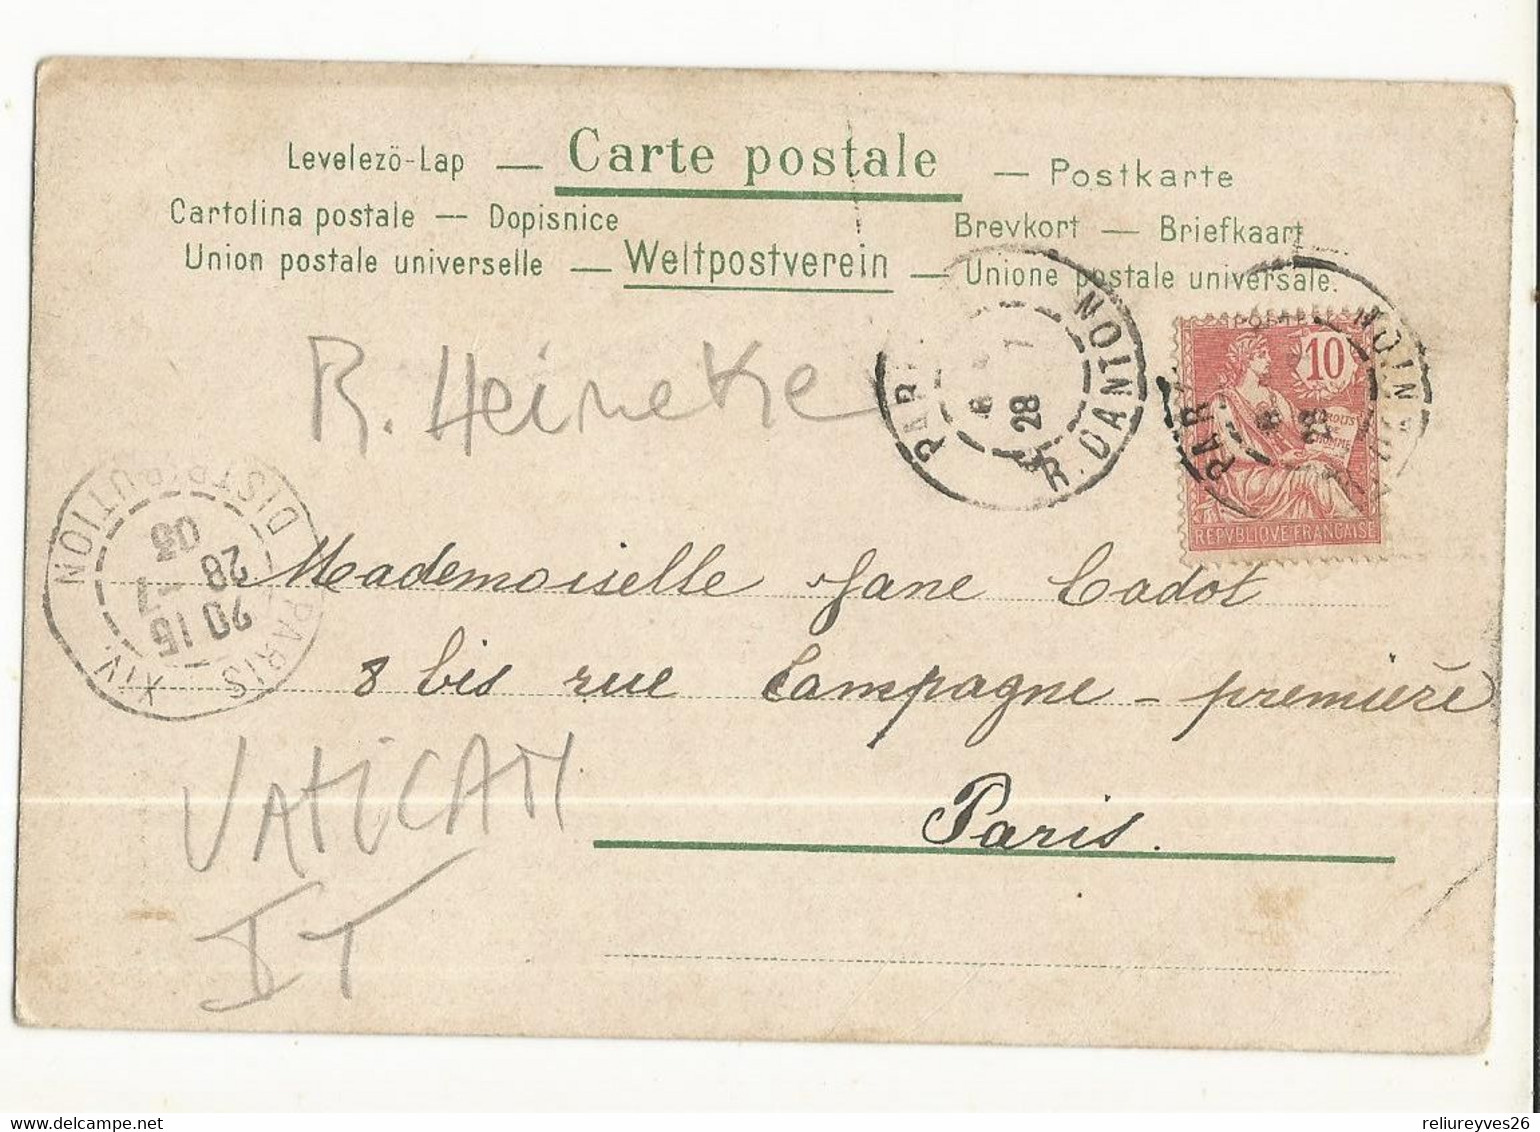 Levelező-Lap — Carte postale — Postkarte
Cartolina postale — Dopisnice Brevkort — Briefkaart
Union postale universelle — Weltpostverein — Unione postale universale.
R. Heineke
PAR
R. DANTON
28
7
10
DROITS
DE
L'HOMME
REPVBLIQVE FRANÇAISE
PARIS XIV
DISTRIBUTION
20 15
28 7
03
Mademoiselle Jane Cadot
8 bis rue Campagne - première
Paris.
VATICAN
IT
reliureyves26